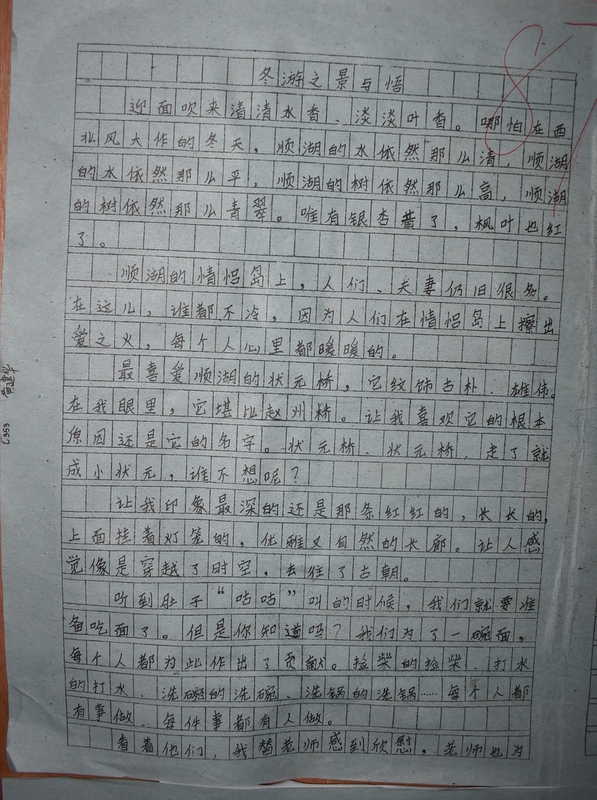 冬游之景与悟
迎面吹来清清水香、淡淡叶香。哪怕在西
北风大作的冬天，顺湖的水依然那么清，顺湖
的水依然那么平，顺湖的树依然那么高，顺湖
的树依然那么青翠。唯有银杏黄了，枫叶也红
了。
顺湖的情侣岛上，人们、夫妻仍旧很多。
在这儿，谁都不冷，因为人们在情侣岛上擦出
爱之火，每个人心里都暖暖的。
最喜爱顺湖的状元桥，它纹饰古朴、雄伟。
在我眼里，它堪比赵州桥。让我喜欢它的根本
原因还是它的名字。状元桥、状元桥，走了就
成小状元，谁不想呢？
让我印象最深的还是那条红红的，长长的，
上面挂着灯笼的，优雅又自然的长廊。让人感
觉像是穿越了时空，去往了古朝。
听到肚子“咕咕”叫的时候，我们就要准
备吃面了。但是你知道吗？我们为了一碗面，
每个人都为此作出了贡献。捡柴的捡柴、打水
的打水、洗碗的洗碗、洗锅的洗锅……每个人都
有事做、每件事都有人做。
看着他们，我替老师感到欣慰，老师也为
8